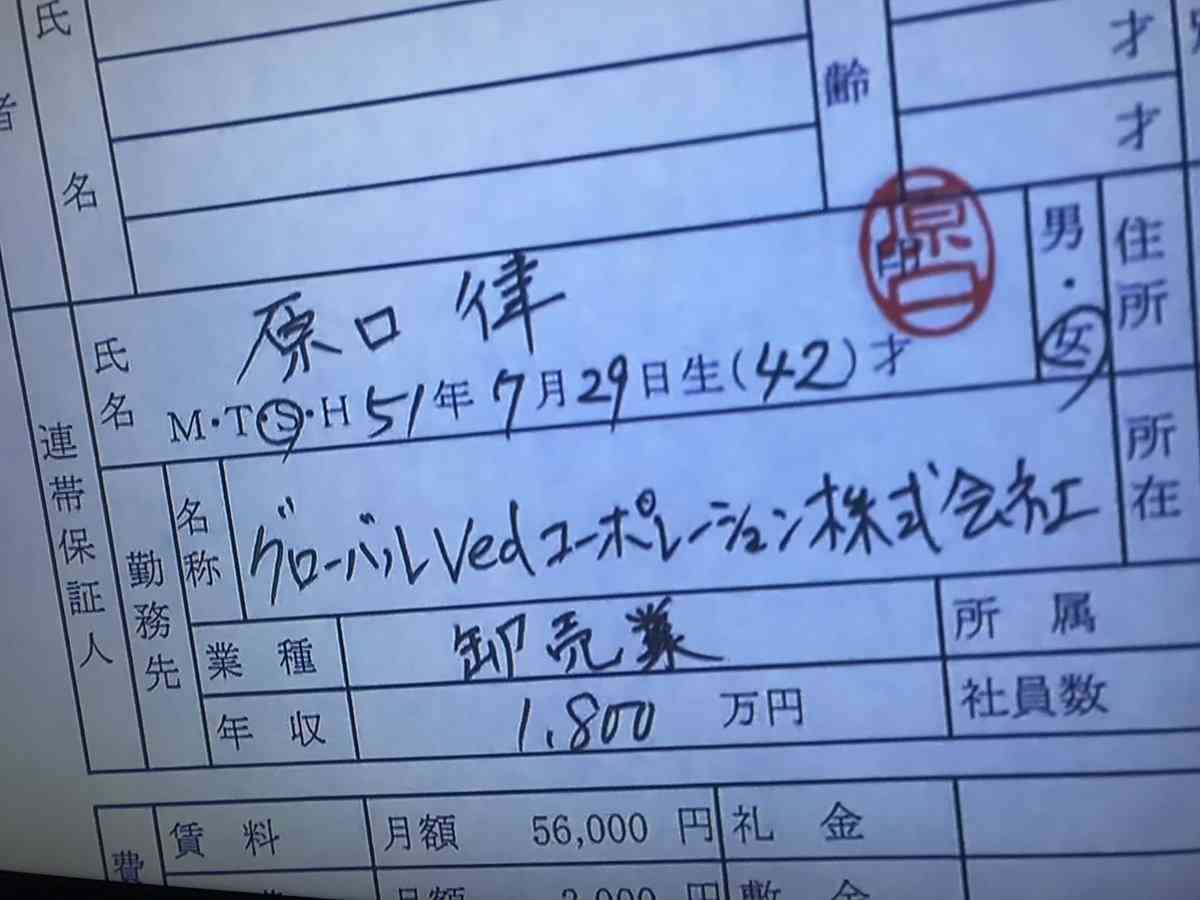 氏名
齢
才
才
者
連帯保証人
氏名 原口 律 印 原口
男・女
住所
M・T・S・H 51年 7月 29日生(42)才
勤務先
名称 グローバルVedコーポレーション株式会社
所在
業種 卸売業 所属
年収 1,800 万円 社員数
費
賃料 月額 56,000 円 礼金
月額 円 敷金